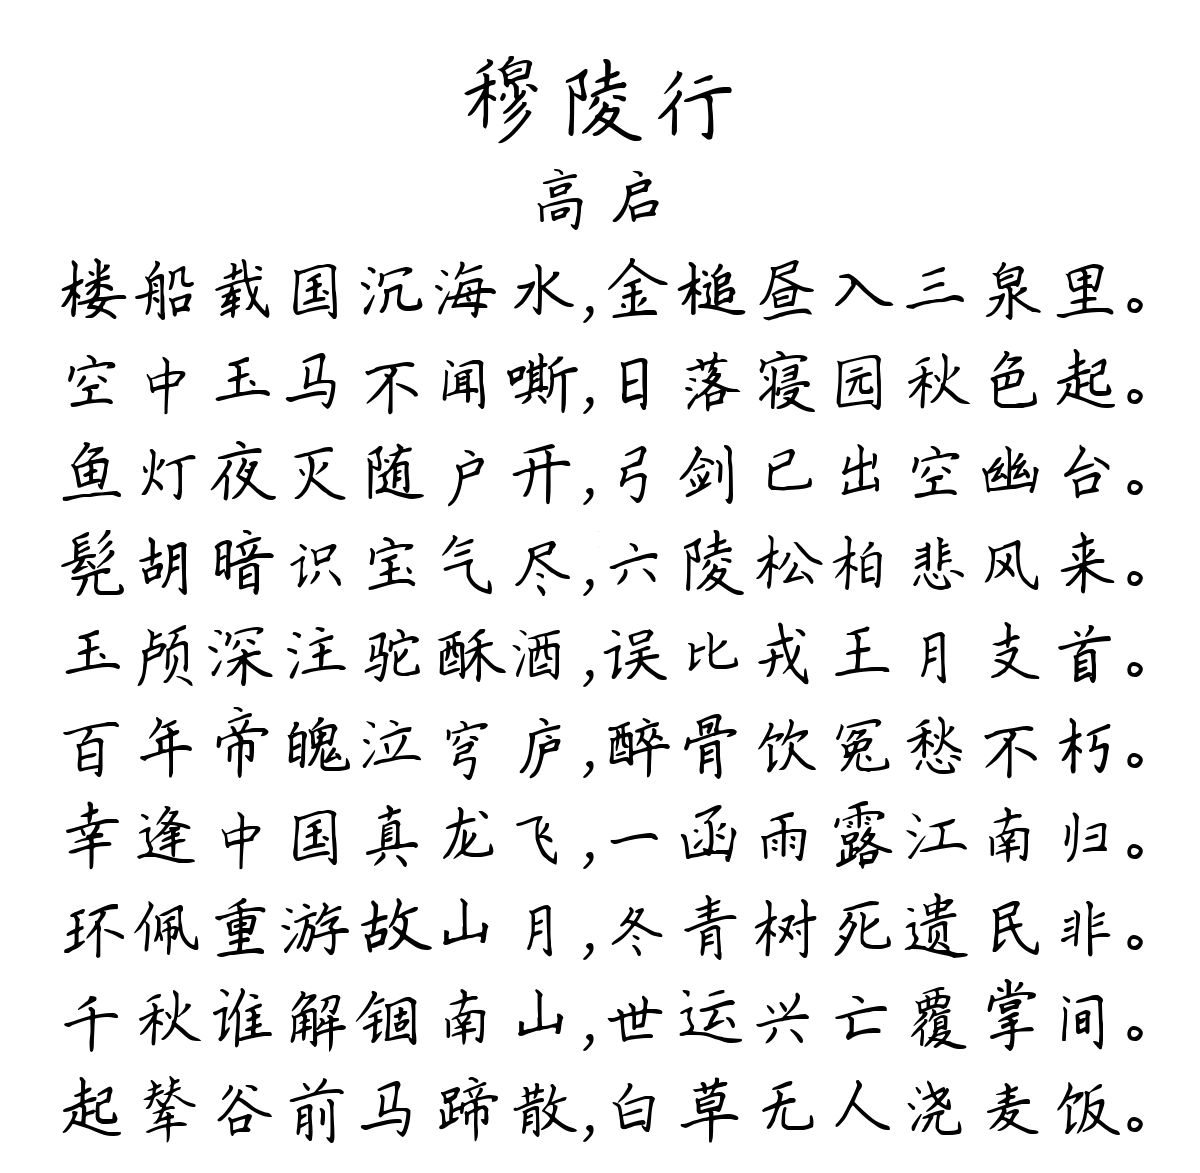 穆陵行
高启
楼船载国沉海水,金槌昼入三泉里。
空中玉马不闻嘶,日落寝园秋色起。
鱼灯夜灭随户开,弓剑已出空幽台。
髡胡暗识宝气尽,六陵松柏悲风来。
玉颅深注驼酥酒,误比戎王月支首。
百年帝魄泣穹庐,醉骨饮冤愁不朽。
幸逢中国真龙飞,一函雨露江南归。
环佩重游故山月,冬青树死遗民非。
千秋谁解锢南山,世运兴亡覆掌间。
起辇谷前马蹄散,白草无人浇麦饭。